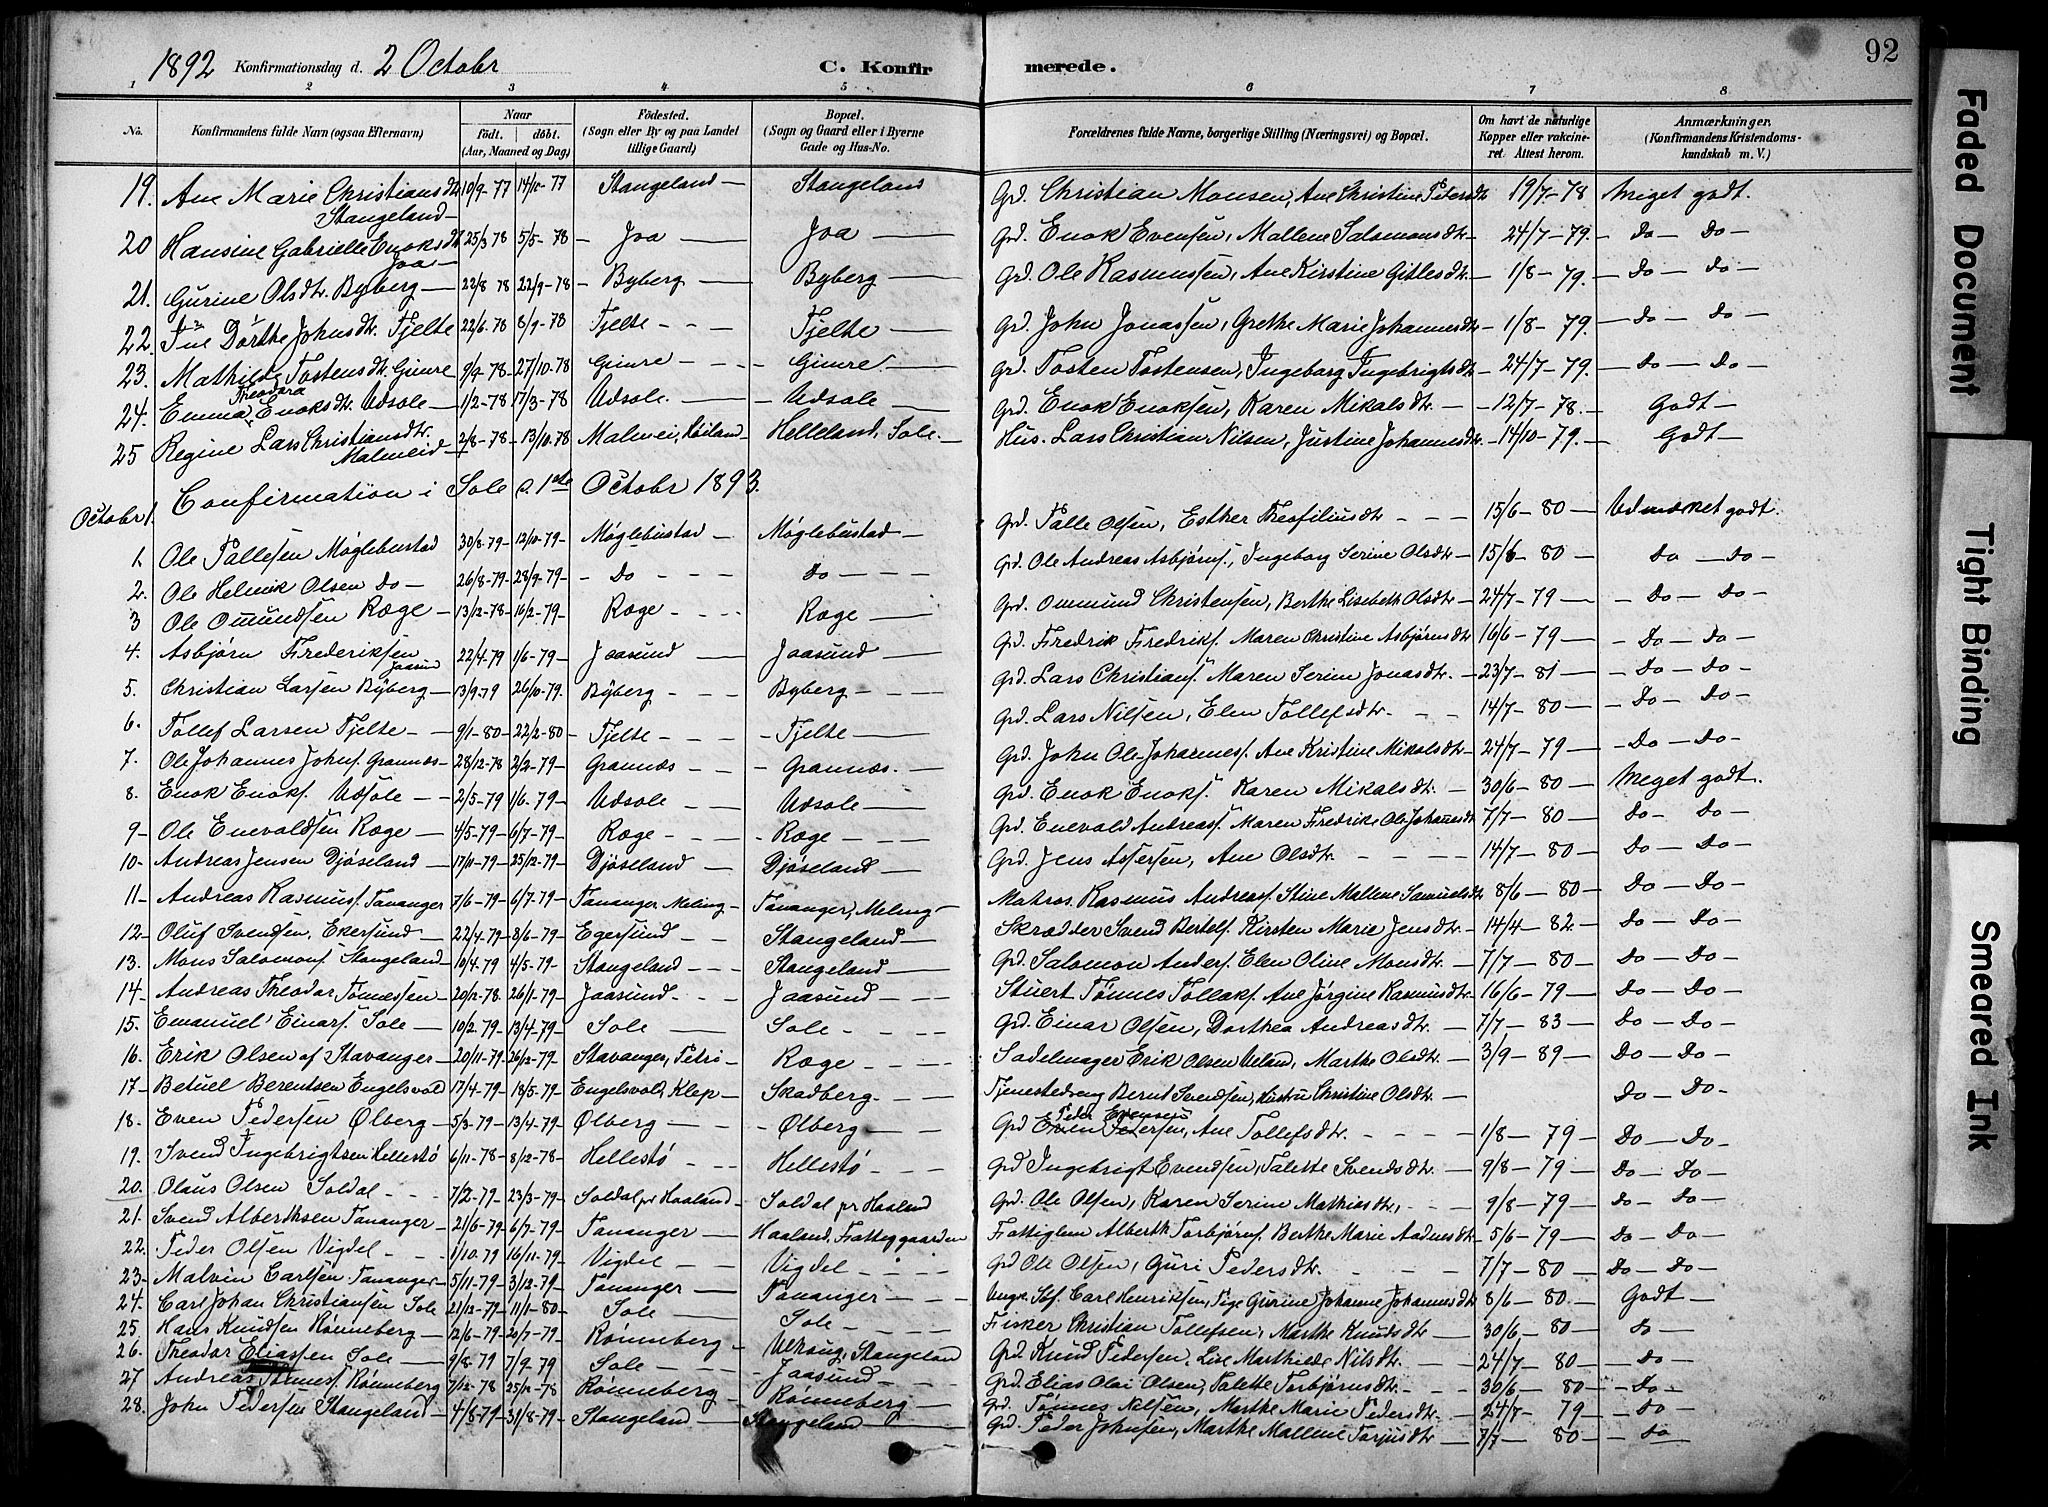 92
1892 Konfirmationsdag d. 2 Octobr C. Konfirmerede.
1 2 3 4 5 6 7 8
No. Konfirmandens fulde Navn (ogsaa Efternavn) Naar født. døbt. (Aar, Maaned og Dag) Fødested. (Sogn eller By og paa Landet tillige Gaard) Bopæl. (Sogn og Gaard eller i Byerne Gade og Hus-No. Forældrenes fulde Navne, borgerlige Stilling (Næringsvei) og Bopæl. Om havt de naturlige Kopper eller vakcineret. Attest herom. Anmærkninger. (Konfirmandens Kristendomskundskab m. V.)
19. Ane Marie Christiansdtr Stangeland 10/9-77 14/10-77 Stangeland Stangeland Grd. Christian Monsen, Ane Christine Pedersdtr 19/7-78 Meget godt.
20 Hansine Gabrielle Enoksdtr Joa 25/3 78 5/5-78 Joa Joa Grd. Enok Evensen, Mallene Salomonsdtr 24/7-79. Do Do
21. Gurine Olsdtr. Byberg 22/8 78 22/9-78 Byberg Byberg Grd. Ole Rasmussen, Ane Kirstine Gitlesdtr. 1/8-79. Do Do
22. Ine Dorthe Johnsdtr. Tjelte 22/6-78 8/9-78 Tjelte Tjelte Grd. John Jonassen, Grethe Marie Johannesdtr 1/8-79. Do Do
23. Mathilde Tostensdtr. Gimre 9/9-78 27/10-78 Gimre Gimre Grd. Tosten Tostensen, Ingeborg Ingebrigtsdtr 24/7-79. Do Do
24. Emma Theodora Enoksdtr. Udsole 1/2-78 17/3-78 Udsole Udsole Grd. Enok Enoksen, Karen Mikalsdtr. 12/7-78. Godt
25 Regine Lars Christiansdtr. Malmeid 2/8-78 13/10-78 Helleland, Sole. Hus. Lars Christian Nilsen, Justine Johannesdtr. 14/10-79. Godt
Confirmation i Sole d. 1ste Octobr 1893.
Octobr 1.
1. Ole Tallesen Møglebustad 30/8-79 12/10-79 Møglebustad Møglebustad Grd. Talle Olsen, Esther Theofiliusdtr 15/6-80 Udmærket godt.
2. Ole Helmik Olsen Do 26/8-79 28/9-79 Do Do Grd. Ole Andreas Asbjørns., Ingeborg Serine Olsdtr 15/6-80 Do Do
3 Ole Ommundsen Ræge 13/12-78 16/2-79 Ræge Ræge Grd. Ommund Christensen, Berthe Lisebeth Olsdtr 24/7-79 Do Do
4. Asbjørn Frederiksen Jaasund 22/4-79 1/6-79 Jaasund Jaasund Grd. Fredrik Fredriks. Maren Christine Asbjørnsdtr 16/6-79 Do Do
5. Christian Larsen Byberg 13/9-79 26/10-79. Byberg Byberg Grd. Lars Christians. Maren Serine Jonasdtr. 23/7-81 Do Do
6. Tollef Larsen Tjelte 9/1-80 22/2-80 Tjelte Tjelte Grd. Lars Nilsen, Elen Tollefsdtr. 14/7-80 Do Do
7. Ole Johannes Johns. Grannæs 28/12-78 2/2-79 Grannæs Grannæs. Grd. John Ole Johannes. Ane Kristine Mikalsdtr 24/7-79 Do Do
8. Enok Enoks. Udsole 2/5-79 1/6-79 Udsole Udsole Grd. Enok Enoks. Karen Mikalsdtr. 30/6-80 Meget godt.
9 Ole Enevaldsen Ræge 4/5-79 6/7-79 Ræge Ræge Grd. Enevald Andreas. Maren Fredrike Ole Johansdtr 7/7-80 Do Do
10 Andreas Jensen Djøseland 17/11-79 25/12-79 Djøseland Djøseland Grd. Jens Assersen, Ane Olsdtr. 14/7-80 Do Do
11 Andreas Rasmus. Tananger 7/6-79 6/7-79 Tananger Meling Tananger, Meling Matros. Rasmus Andreas. Stine Mallene Samuelsdtr 8/6-80 Do Do
12 Oluf Svendsen, Ekersund 22/4-79 8/6-79 Egersund Stangeland Skrædder Svend Bertels. Kirsten Marie Jensdtr. 14/4-82 Do Do
13. Mons Salomons. Stangeland 10/4-79 4/5-79 Stangeland Stangeland Grd. Salomon Anders. Elen Oline Monsdtr. 7/7-80 Do Do
14 Andreas Theodor Tønnessen 20/12-78 26/1-79 Jaasund Jaasund Stuert Tønnes Tollaks. Ane Jørgine Rasmusdtr 16/6-79 Do Do
15. Emanuel Einars. Sole 10/2-79 13/4-79 Sole Sole Grd. Einar Olsen, Dorthea Andreasdtr. 7/7-83 Do Do
16. Erik Olsen af Stavanger 20/11-79 26/12-79 Stavanger, Petri Ræge Sadelmager Erik Olsen Ueland, Marthe Olsdtr. 3/9-89 Do Do
17 Betuel Berentsen Engelsvold 17/4-79 18/5-79 Engelsvold, Klep Skadberg Tjenestedreng Bernt Svendsen, Hustru Christine Olsdtr Do Do
18. Even Pedersen Ølberg 5/3-79 13/4-79 Ølberg Ølberg Grd Peder Evensen Even Pedersen, Ane Tollefsdtr. 1/8-79 Do Do
19. Svend Ingebrigtsen Hellestø 6/11-78 8/12-78 Hellestø Hellestø Grd Ingebrigt Evendsen, Talette Svendsdtr. 9/8-79 Do Do
20. Olaus Olsen Soldal 7/2-79 23/3-79 Soldal pr Haaland Soldal pr Haaland Grd. Ole Olsen, Karen Serine Mathiasdtr, 9/8-79 Do Do
21. Svend Alberthsen Tananger 21/6-79 6/7-79 Tananger Haaland, Fattiggaarden Fattiglem Alberth Torbjørns. Berthe Marie Aadnesdtr 5/6-79 Do Do
22. Peder Olsen Vigdel 1/10 79 16/11-79 Vigdel Vigdel Grd Ole Olsen, Guri Pedersdtr. 7/7-80 Do Do
23 Malvin Carlsen Tananger 5/11-79 3/12-79 Tananger Tananger Ungk. Sef. Carl Henriksen, Pige Gurine Johanne Johannesdtr 8/6-80. Godt
24. Carl Johan Christiansen Sole 21/12-79 11/1-80 Sole Sole Fisker Christian Tollefsen, Marthe Knudsdtr 30/6-80 do
25. Hans Knudsen Rønneberg 12/6-79 20/7-79 Rønneberg Stangeland Grd. Knud Pedersen. Lise Marthilde Nilsdtr. 24/7-80 Do
26. Theodor Eliassen Sole 9/8-79 7/9-79 Sole Jaasund Grd. Elias Olai Olsen, Talette Torbjørnsdtr. 30/6-80 Do
27 Andreas Tønnes. Rønneberg 7/12-78 25/12-78 Rønneberg Rønneberg Grd. Tønnes Nilsen, Marthe Marie Pedersdtr. 24/7-79 Do
28. John Pedersen Stangeland 4/8-79 31/8-79 Stangeland Stangeland Grd. Peder Johnsen, Marthe Mallene Torjusdtr. 7/7-80 Do
Faded Document
Tight Binding
Smeared Ink